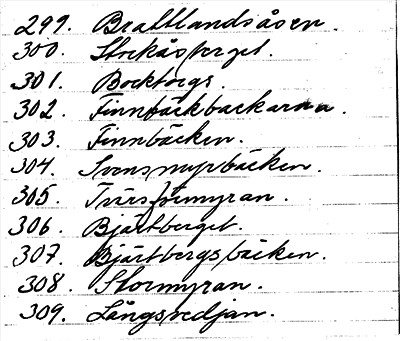 299. Brattlandsåsen.
300. Stockåsberget.
301.
302. Finnbäckbackarna.
303. Finnbäcken.
304. Svensmyrbäcken.
305.
306. Bjärtberget.
307. Bjärtbergsbäcken.
308. Stormyran.
309. Långsvedjan.